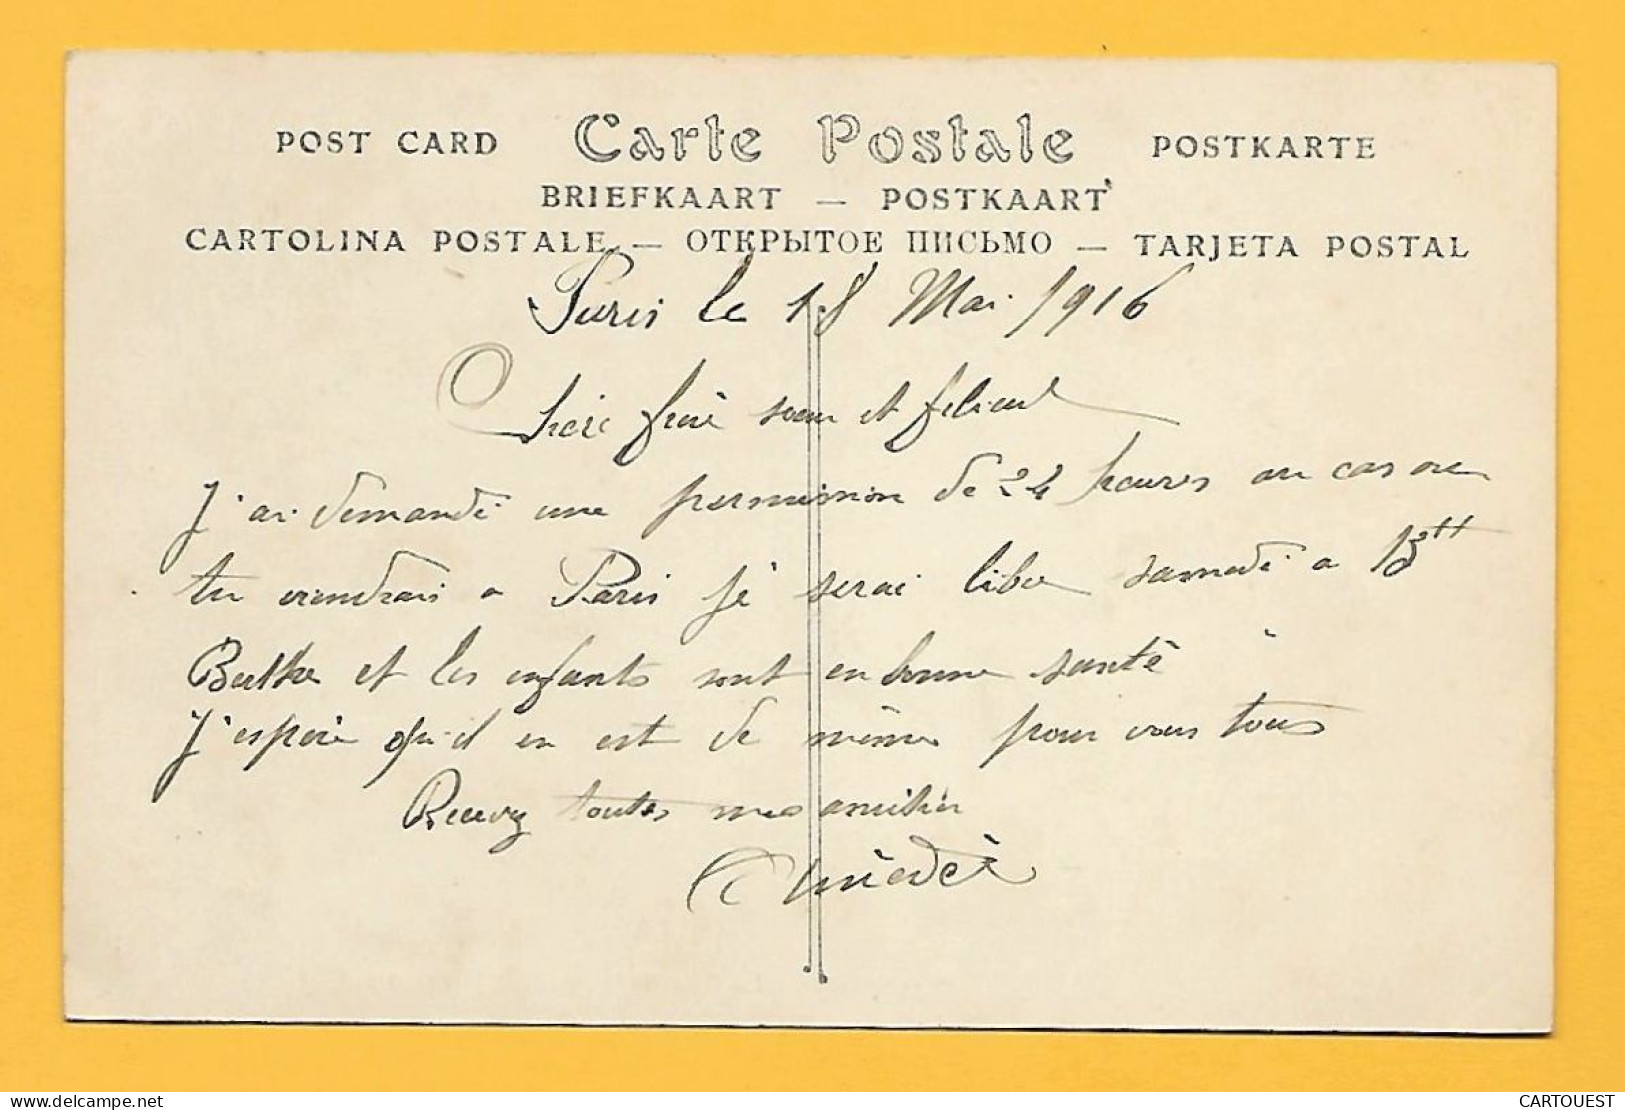 POST CARD Carte Postale POSTKARTE
BRIEFKAART — POSTKAART
CARTOLINA POSTALE — ОТКРЫТОЕ ПИСЬМО — TARJETA POSTAL
Paris le 18 Mai 1916
Chere frère soeur et
J'ai demandé une permission de 24 heures au cas ou
tu viendrais a Paris je serai libre samedi a 13H
Berthe et les enfants sont en bonne santé
J'espère qu'il en est de même pour vous tous
Recevez toutes mes amitiés
Amédée
delcampe.net
CARTOUEST